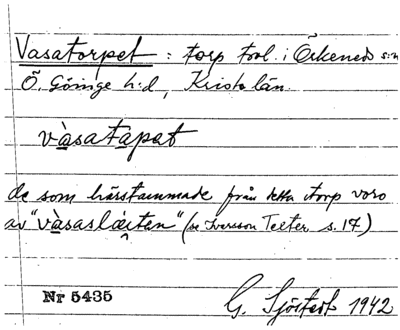 Vasatorpet : torp trol. i Örkeneds s:n
Ö. Göinge h:d, Krist. län.
vàsatapat
de som härstammade från detta torp voro
av "vàsaslǽiten" (se Iversson Teeter s. 17)
Nr 5435
G. Sjöstedt 1942